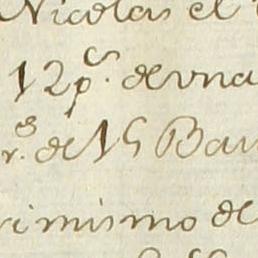 Nicolas el
12 p.s de vna
r.s de 15 Bar
imismo de